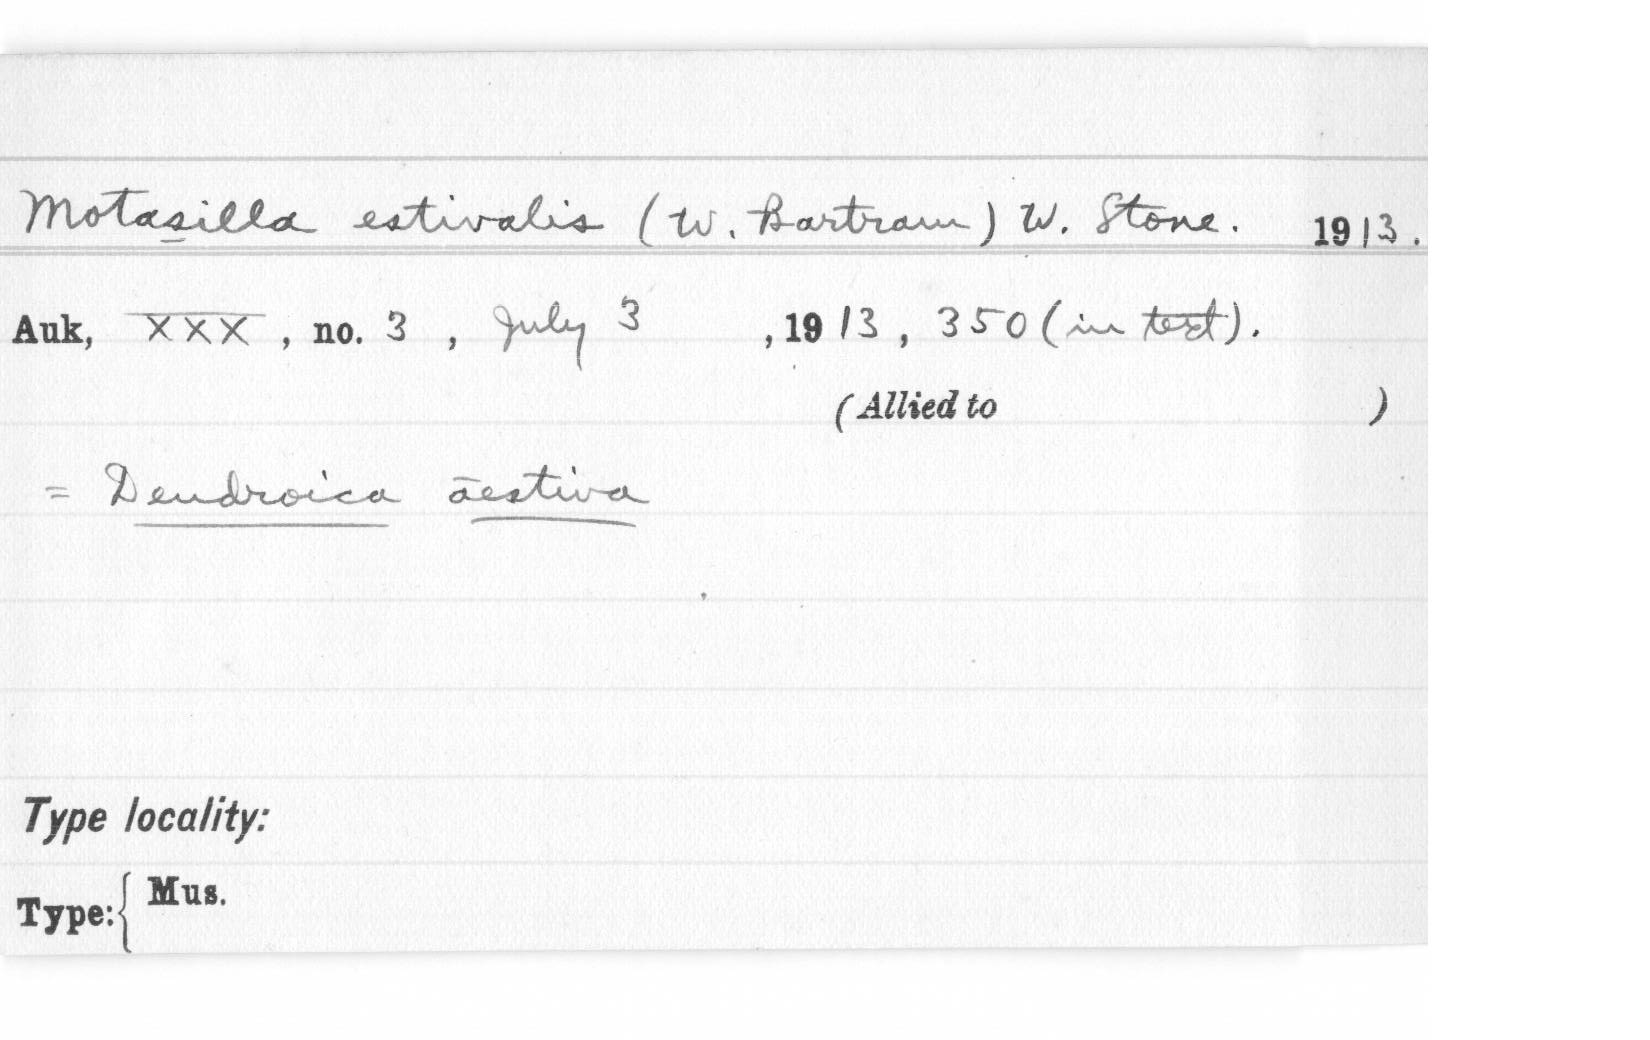 Motasilla estivalis (W. Bartram) W. Stone. 1913.
Auk, XXX, no. 3, July 3, 1913, 350 (in text).
(Allied to )
= Dendroica aestiva
Type locality:
Type: { Mus.